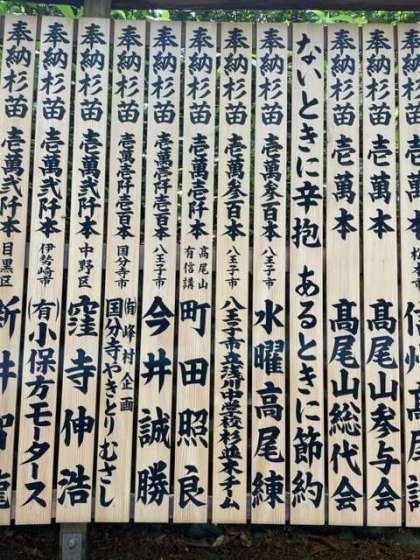 奉納杉苗 壱萬本
奉納杉苗 壱萬本 髙尾山参与会
奉納杉苗 壱萬本 髙尾山総代会
ないときに辛抱 あるときに節約
奉納杉苗 壱萬参百本 八王子市 水曜高尾練
奉納杉苗 壱萬参百本 八王子市 八王子市立浅川中学校杉並木チーム
奉納杉苗 壱萬壱阡本 高尾山有信講 町田照良
奉納杉苗 壱萬壱阡壱百本 八王子市 今井誠勝
奉納杉苗 壱萬壱阡壱百本 国分寺市 ㈲峰村企画 国分寺やきとりむさし
奉納杉苗 壱萬弐阡本 中野区 窪寺伸浩
奉納杉苗 壱萬弐阡本 伊勢崎市 (有)小保方モータース
奉納杉苗 壱萬弐阡本 目黒区 新井智龍